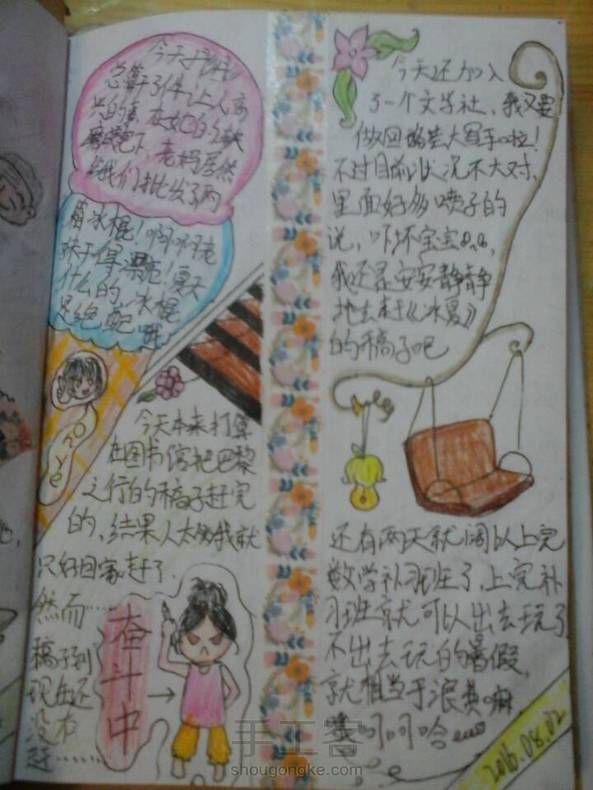 今天呼呼
总算了件让人高
兴的事,在妃的
老妈居然
给我们批发了两
箱冰棍!啊啊老
妹于得漂亮!夏天
什么的,冰棍
是绝配哦
loYe
今天本来打算
在图书馆把巴黎
之行的稿子赶完
的,结果人太多我就
只好回家赶了.
然而……
稿子到
现在还
没有
赶……
奋斗中
今天还加入
了一个文学社,我又要
做回酷芸大写手啦!
不过目前状况不大对,
里面好多喷子的
说,吓坏宝宝
我还是安安静静
地去赶《冰夏》
的稿子吧
还有两天就阔以上完
数学补习班了,上完补
习班就可以出去玩了
不出去玩的暑假,
就相当于浪费嘛
呵呵哈
2016.08.02
手工客
shougongke.com